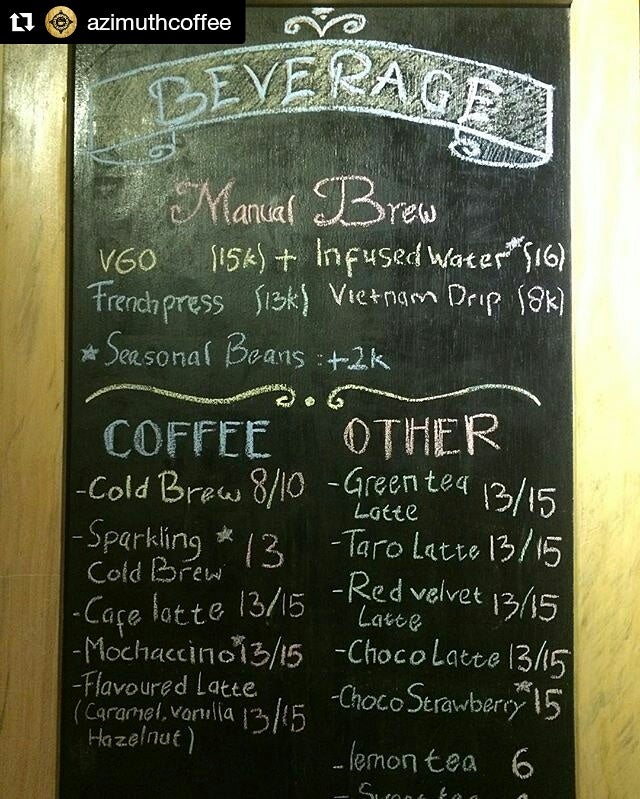 azimuthcoffee
BEVERAGE
Manual Brew
V60 (15k) + Infused Water* (16)
Frenchpress (13k) Vietnam Drip (8k)
* Seasonal Beans : +2k
COFFEE
- Cold Brew 8/10
- Sparkling * 13
Cold Brew
- Cafe latte 13/15
- Mochaccino* 13/15
- Flavoured Latte
(Caramel, vanilla 13/15
Hazelnut)
OTHER
- Green tea 13/15
Latte
- Taro Latte 13/15
- Red velvet 13/15
Latte
- Choco Latte 13/15
- Choco Strawberry* 15
- lemon tea 6